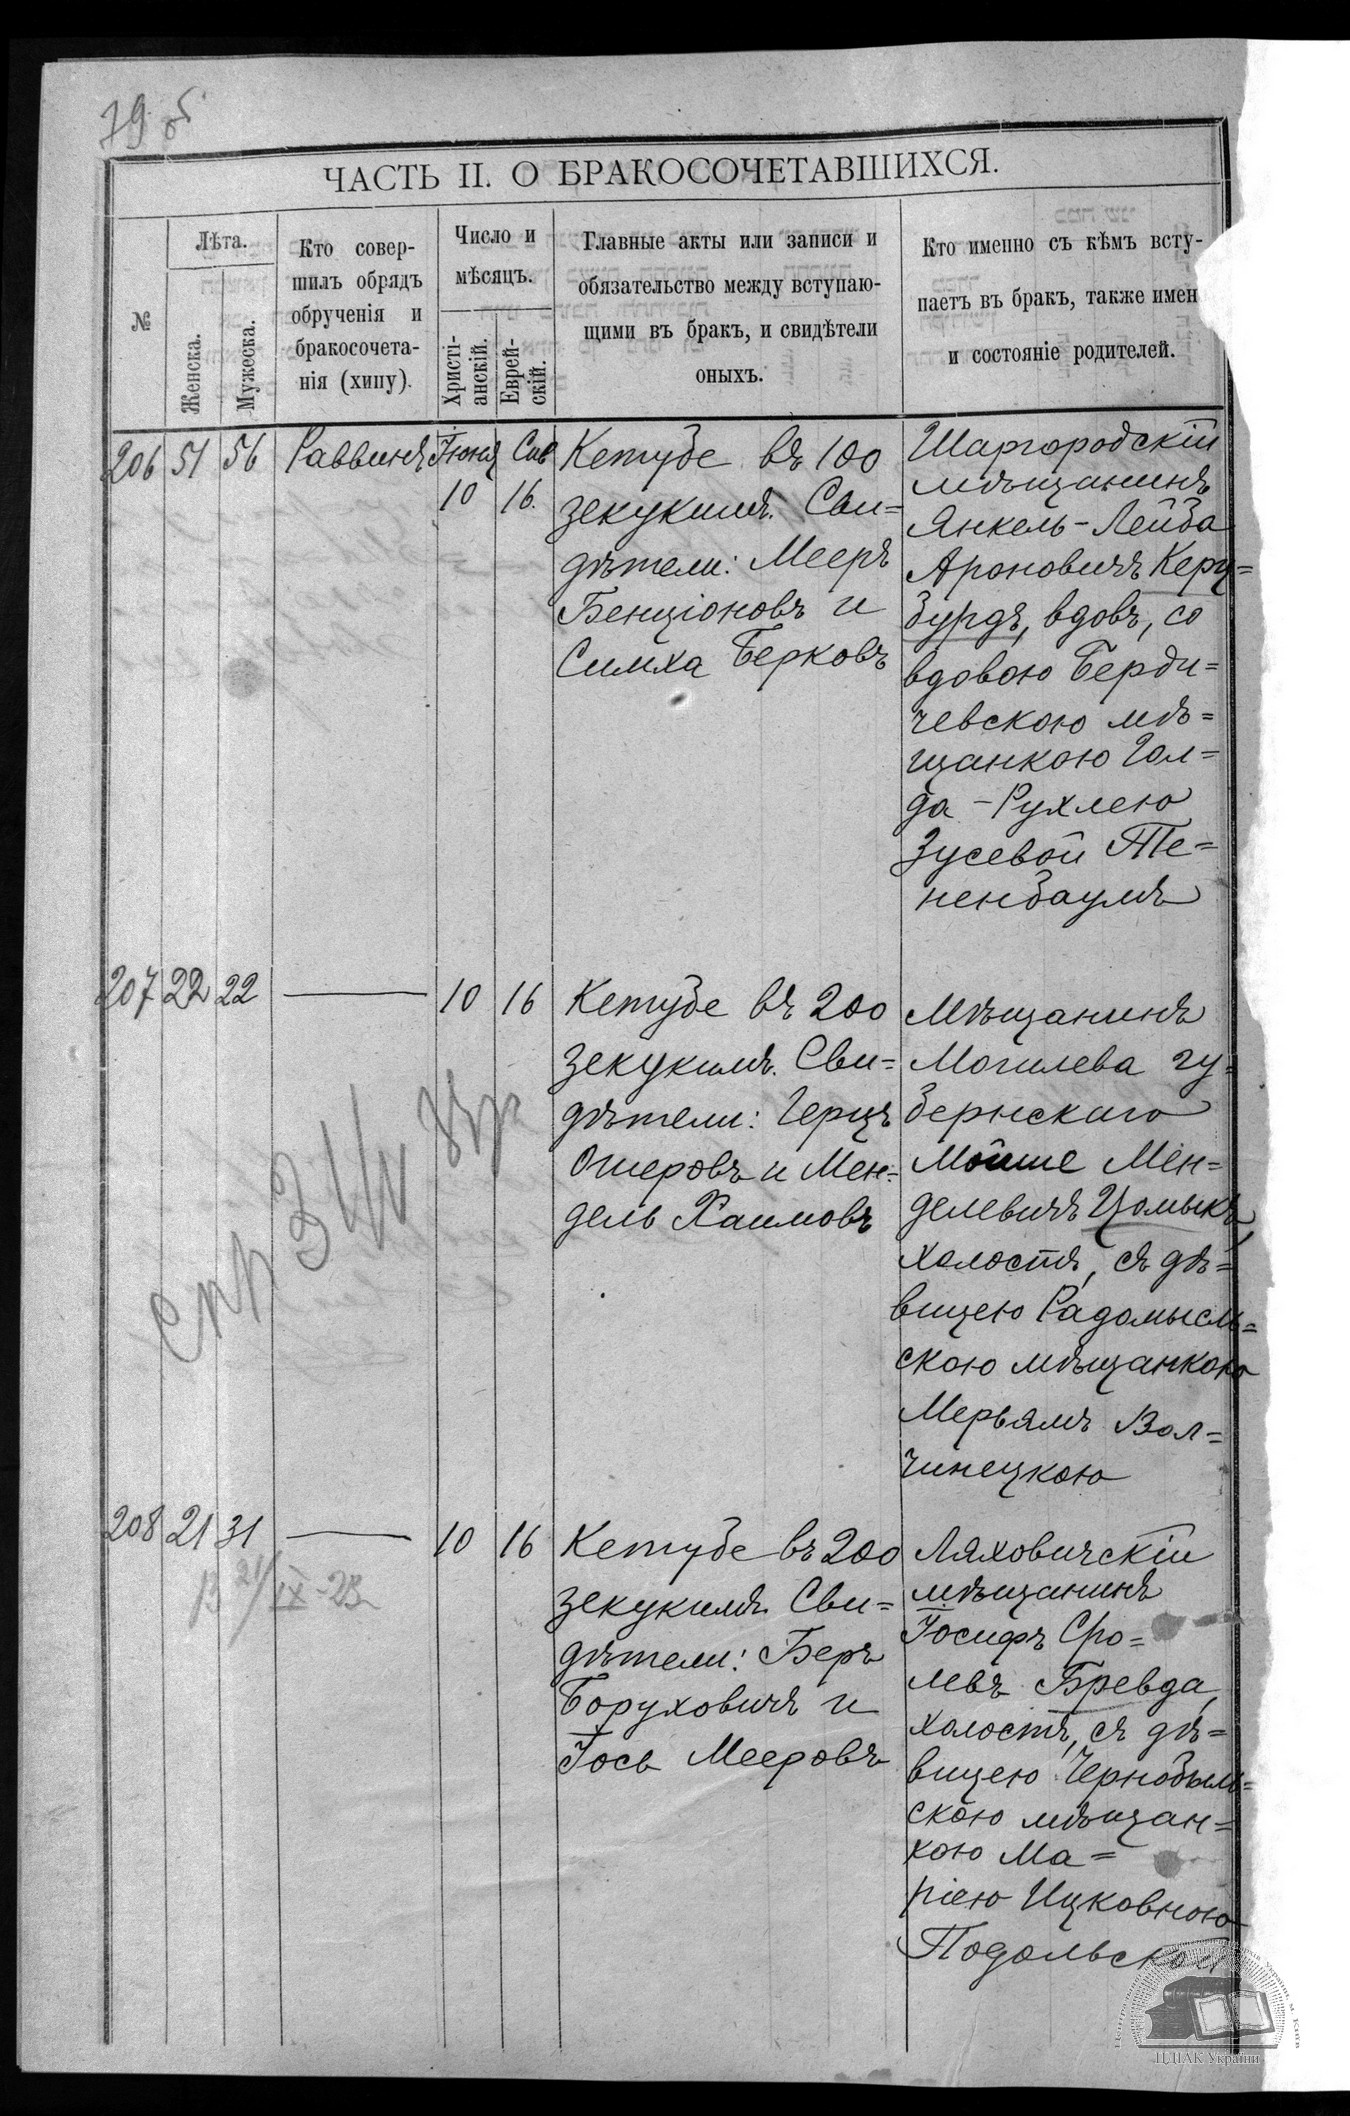 79 об
ЧАСТЬ II. О БРАКОСОЧЕТАВШИХСЯ.
№
Лѣта.
Женска.
Мужеска.
Кто совер-
шилъ обрядъ
обрученія и
бракосочета-
нія (хипу).
Число и
мѣсяцъ.
Христі-
анскій.
Еврей-
скій.
Главные акты или записи и
обязательство между вступаю-
щими въ бракъ, и свидѣтели
оныхъ.
Кто именно съ кѣмъ всту-
паетъ въ бракъ, также имен
и состояніе родителей.
206 51 56 Раввинъ Іюня 10 Сив 16.
Кетубе въ 100
зекукимъ. Сви=
дѣтели: Мееръ
Бенціоновъ и
Симха Берковъ
Шаргородскій
мѣщанинъ
Янкель-Лейба
Ароновичъ Керц=
бурдъ, вдовъ, со
вдовою Берди=
чевскою мѣ=
щанкою Гол=
да-Рухлею
Зусевой Те=
ненбаумъ
207 22 22 — 10 16
Кетубе въ 200
зекукимъ. Сви=
дѣтели: Герцъ
Ошеровъ и Мен=
дель Хаимовъ
Мѣщанинъ
Могилева гу=
бернскаго
Мойше Мен=
делевичъ Цомыкъ,
холостъ, съ дѣ=
вицею Радомысль=
скою мѣщанкою
Мерьямъ Вол=
чинецкою
208 21 31 — 10 16
21/IX-23
Кетубе въ 200
зекукимъ. Сви=
дѣтели: Беръ
Боруховичъ и
Іось Мееровъ
Ляховичскій
мѣщанинъ
Іосифъ Сро=
левъ Бревда,
холостъ, съ дѣ=
вицею Чернобыль=
скою мѣщан=
кою Ма=
ріею Ицковною
Подольской
ЦДІАК України